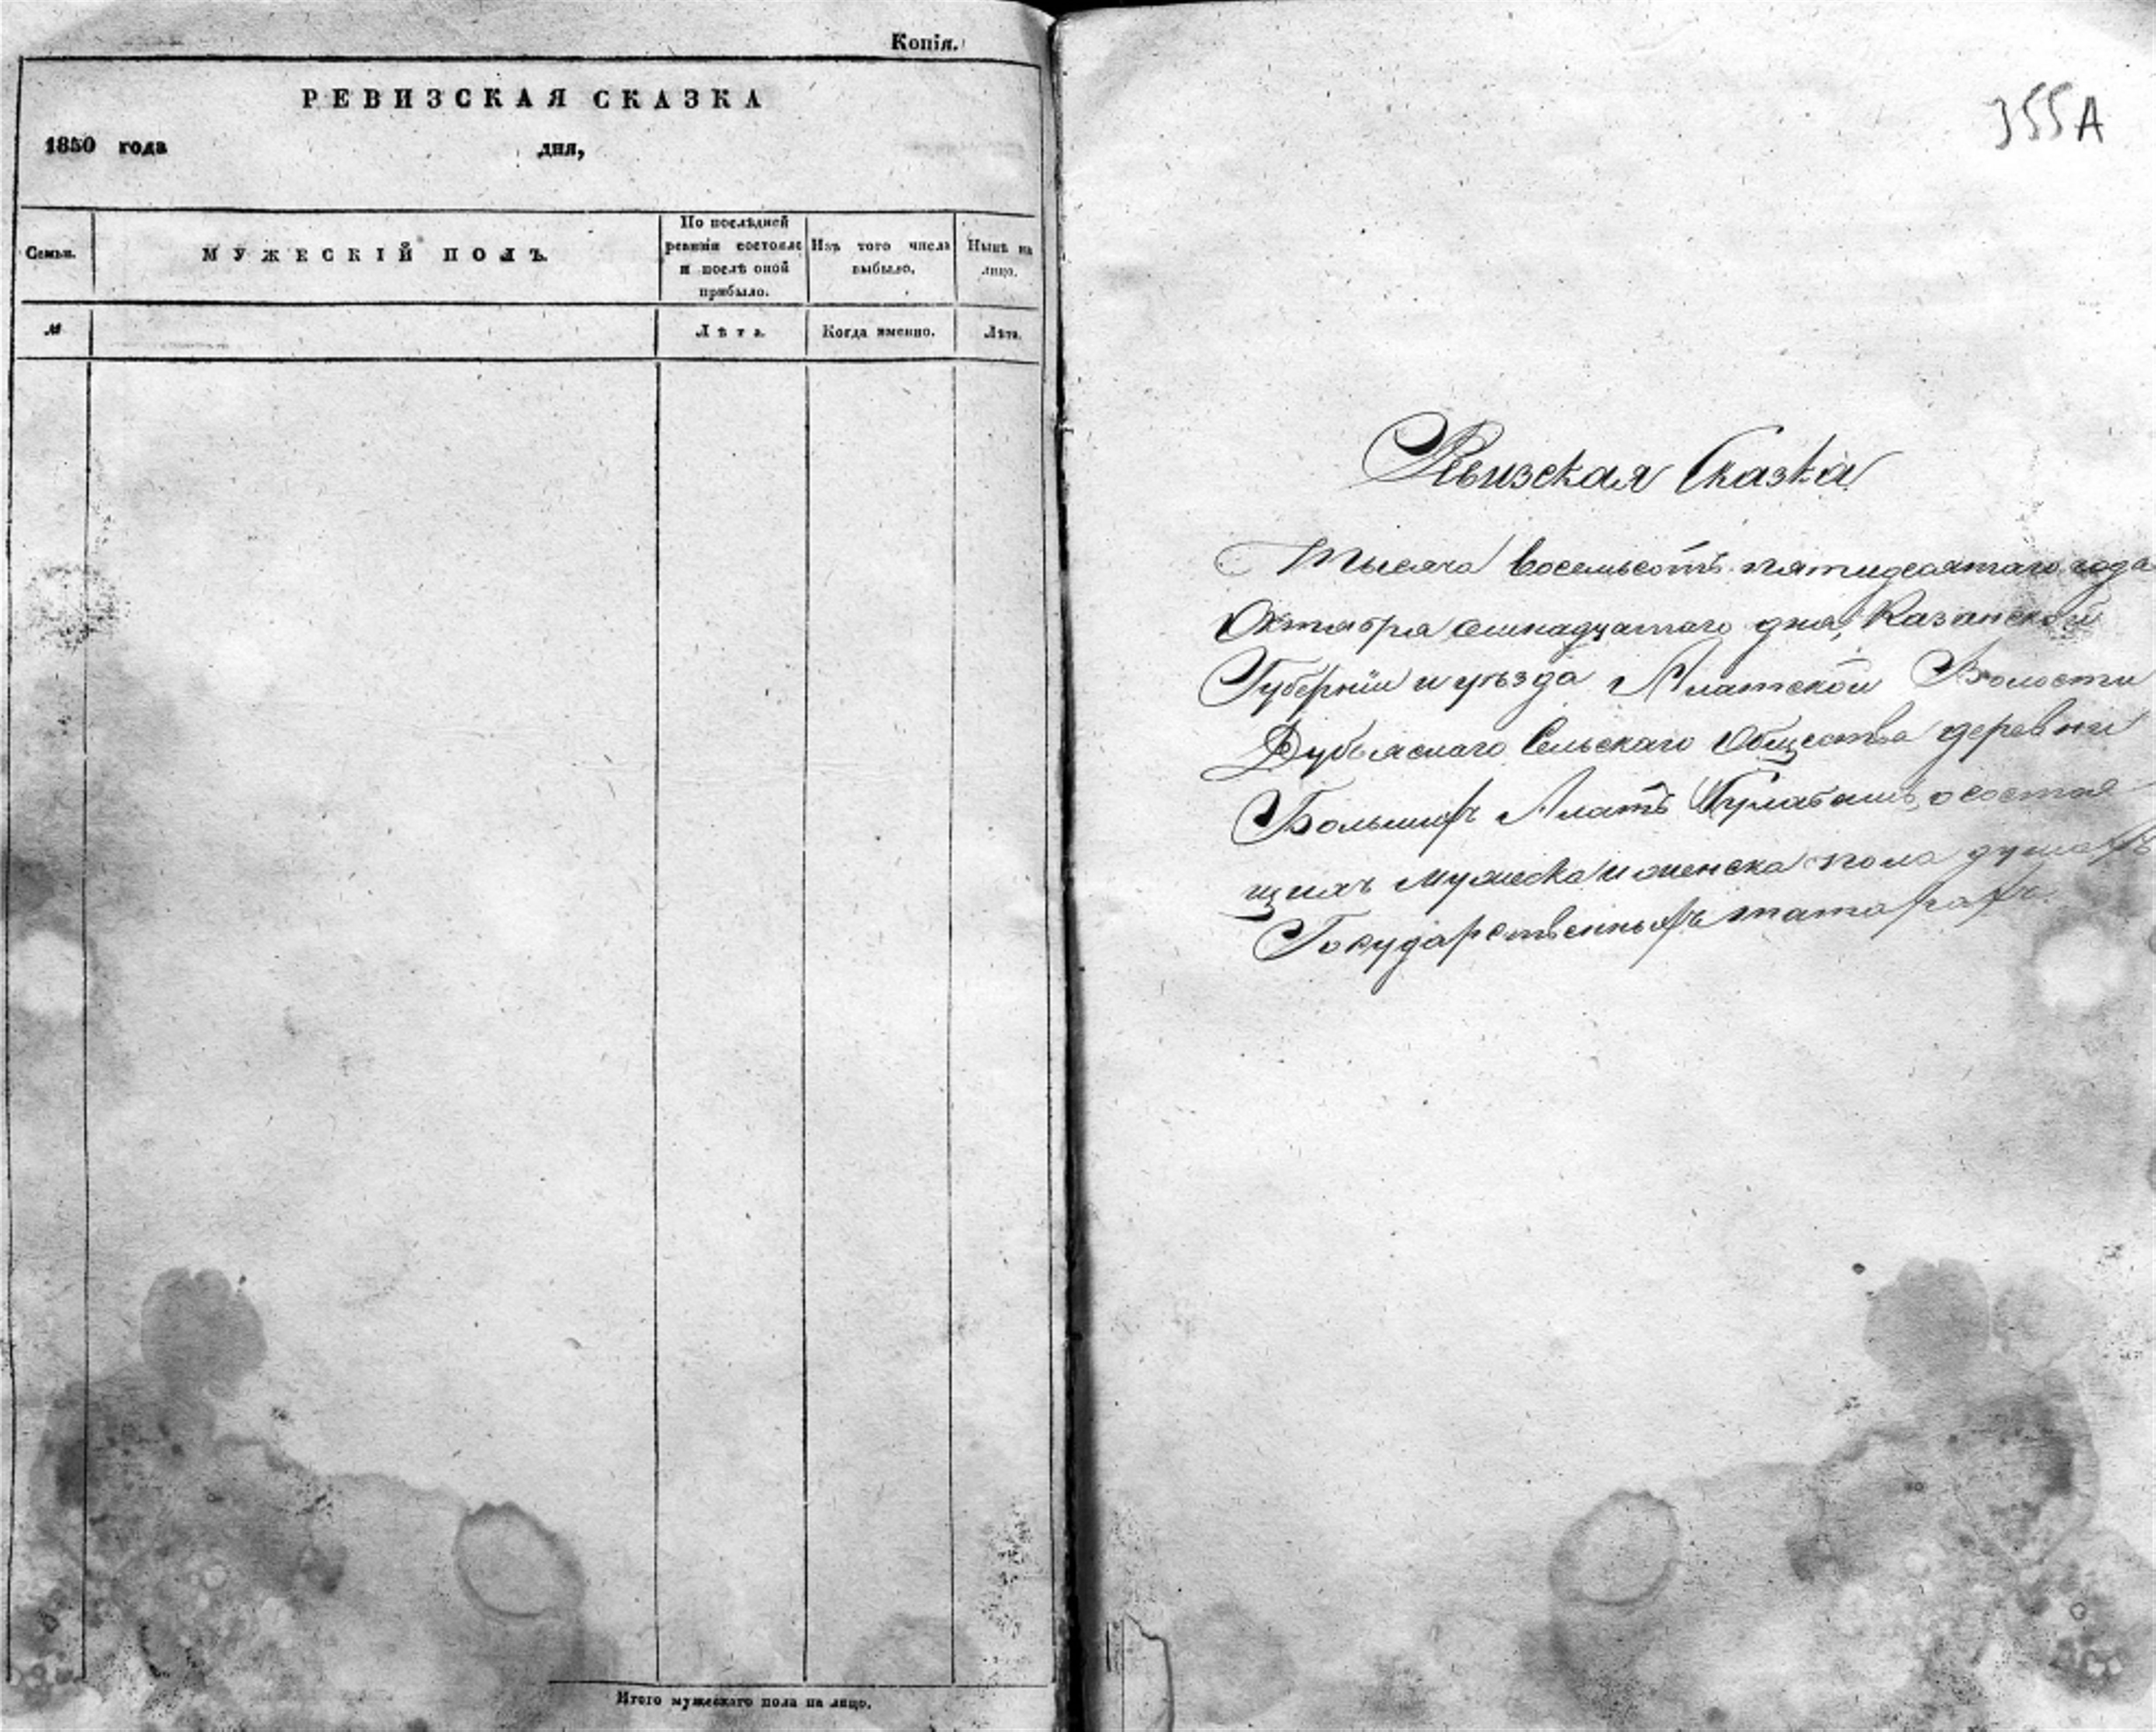 Копія.
РЕВИЗСКАЯ СКАЗКА
1850 года дня,
Семьи.
МУЖЕСКІЙ ПОЛЪ.
По послѣдней
ревизіи состояло
и послѣ оной
прибыло.
Изъ того числа
выбыло.
Нынѣ на
лицо.
№
Лѣта.
Когда именно.
Лѣта.
Итого мужескаго пола на лицо.
355А
Ревизская Сказка
Тысяча восемьсотъ пятидесятаго года
Октября семнадцатаго дня, Казанской
Губерніи и уѣзда Алатской Волости
Дубьяскаго Сельскаго Общества деревни
Большихъ Алатъ Кулабашъ, о состоя
щихъ мужеска и женска пола душахъ
Государственныхъ татарахъ.